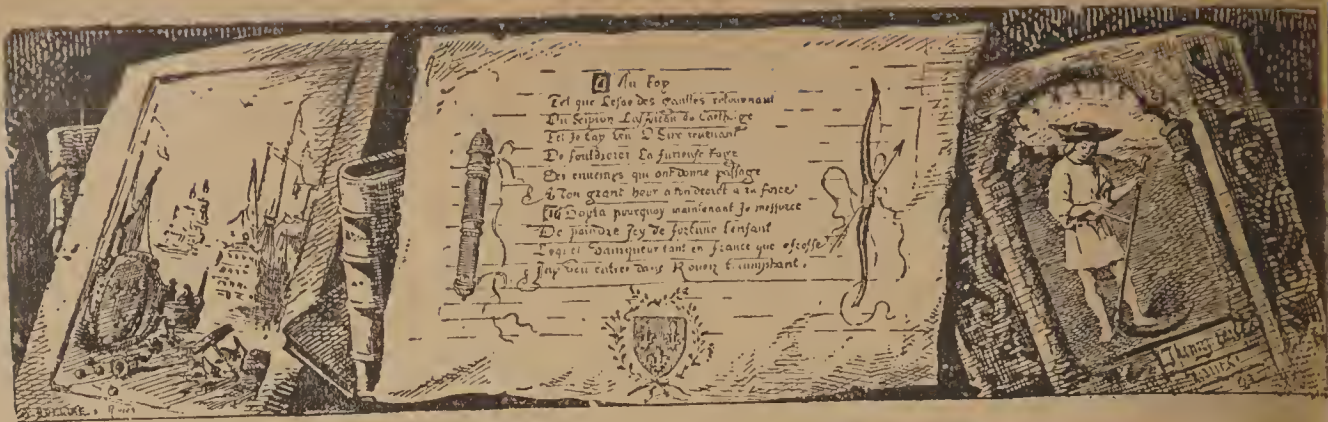 Au Roy
Tel que Cesar des gaulles retournant
Ou Scipion Laffrican de Carthaige
Tel Je tay veu O Sire revenant
De souldoier La furieuse Rage
Des ennemis qui ont donne passage
A Ton grant heur a ton decret a ta force
Voyla pourquoy maintenant Je mefforce
De paindre Jcy de fortune lenfant
Lequel Vainqueur tant en france que escosse
Jay veu entrer dans Rouen triumphant.